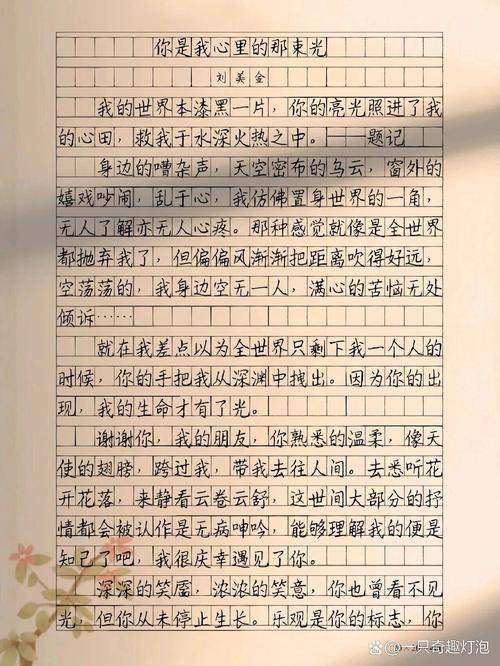 你是我心里的那束光
刘美金
我的世界本漆黑一片，你的亮光照进了我
的心田，救我于水深火热之中。——题记
身边的嘈杂声，天空密布的乌云，窗外的
嬉戏吵闹，乱于心，我仿佛置身世界的一角，
无人了解亦无人心疼。那种感觉就像是全世界
都抛弃我了，但偏偏风渐渐把距离吹得好远，
空荡荡的，我身边空无一人，满心的苦恼无处
倾诉……
就在我差点以为全世界只剩下我一个人的
时候，你的手把我从深渊中拽出。因为你的出
现，我的生命才有了光。
谢谢你，我的朋友，你熟悉的温柔，像天
使的翅膀，跨过我，带我去往人间。去悉听花
开花落，来静看云卷云舒，这世间大部分的抒
情都会被认作是无病呻吟，能够理解我的便是
知己了吧，我很庆幸遇见了你。
深深的笑靥，浓浓的笑意，你也曾看不见
光，但你从未停止生长。乐观是你的标志，你
一只奇趣灯泡